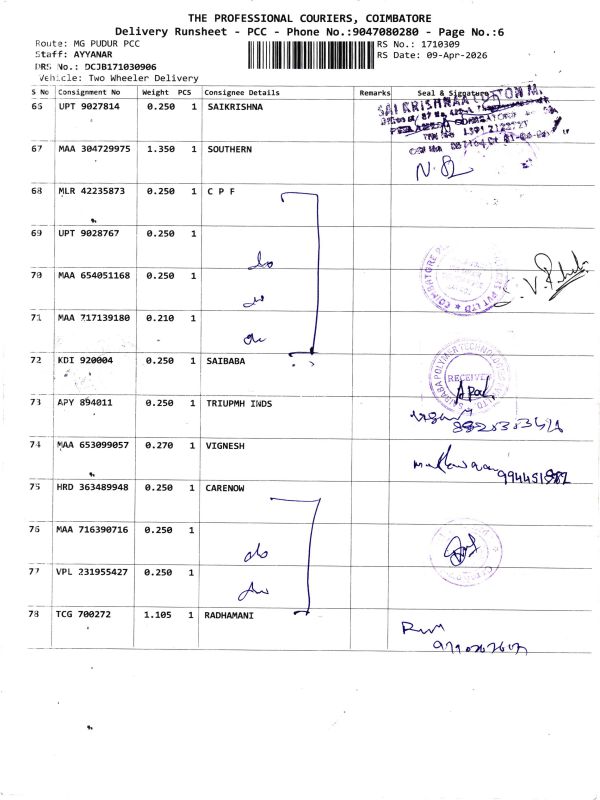 THE PROFESSIONAL COURIERS, COIMBATORE
Delivery Runsheet - PCC - Phone No.:9047080280 - Page No.:6
Route: MG PUDUR PCC RS No.: 1710309
Staff: AYYANAR RS Date: 09-Apr-2026
DRS No.: DCJB171030906
Vehicle: Two Wheeler Delivery
S No Consignment No Weight PCS Consignee Details Remarks Seal & Signature
UPT 9027814 0.250 1 SAIKRISHNA
SAI KRISHNAA COTTON M.
67 MAA 304729975 1.350 1 SOUTHERN
68 MLR 42235873 0.250 1 C P F
69 UPT 9028767 0.250 1
do
70 MAA 654051168 0.250 1
71 MAA 717139180 0.210 1
72 KDI 920004 0.250 1 SAIBABA
RECEIVED
73 APY 894011 0.250 1 TRIUPMH INDS
74 MAA 653099057 0.270 1 VIGNESH
75 HRD 363489948 0.250 1 CARENOW
76 MAA 716390716 0.250 1
do
77 VPL 231955427 0.250 1
78 TCG 700272 1.105 1 RADHAMANI